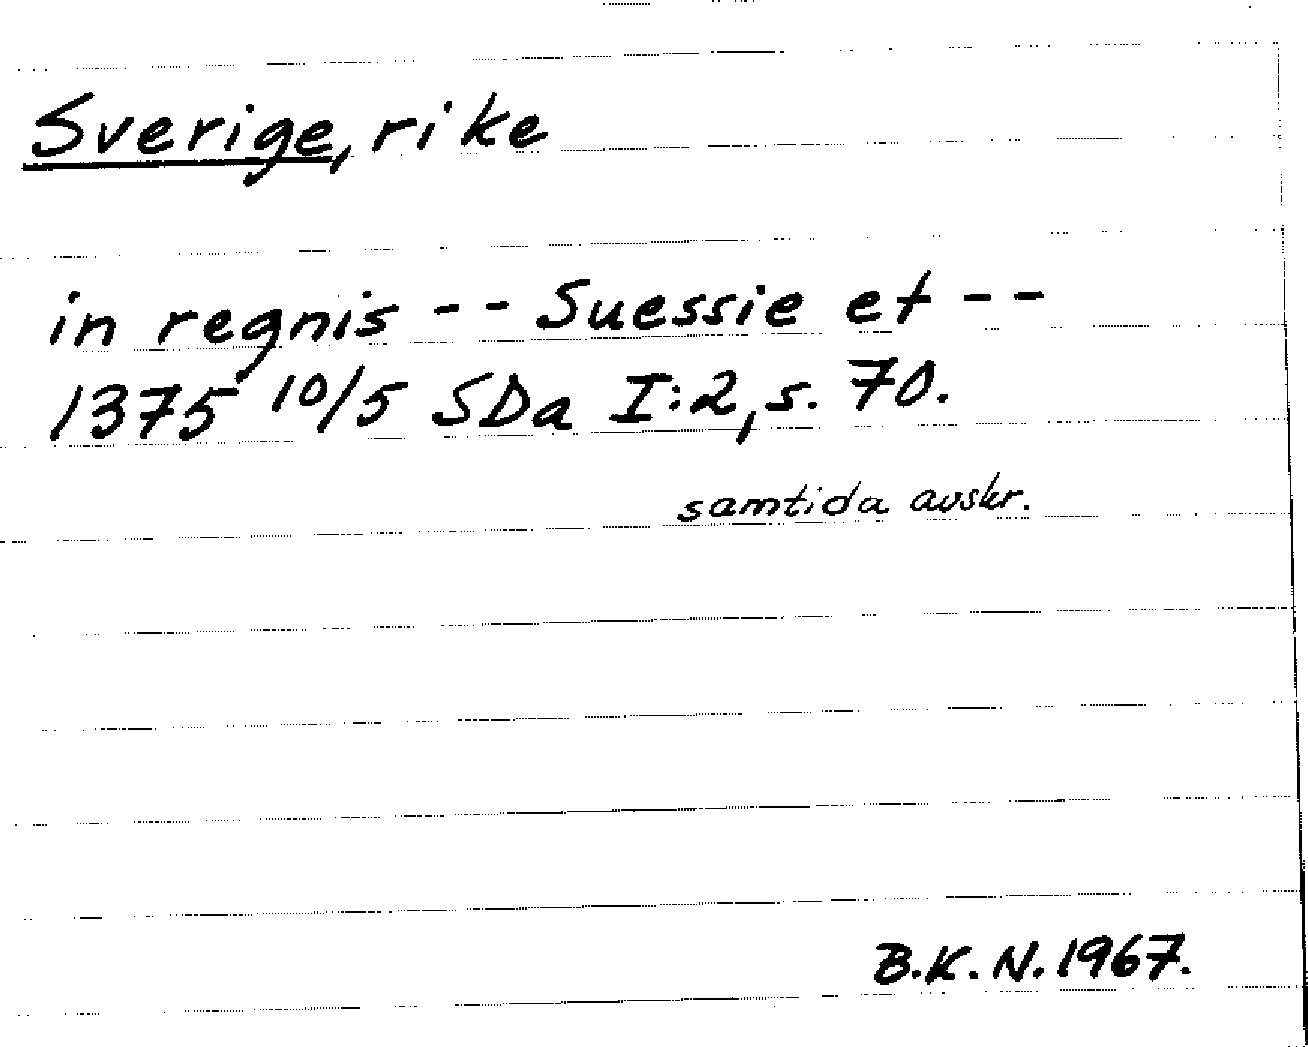 Sverige, rike
in regnis -- Suessie et --
1375 10/5 SDa I:2, s. 70.
samtida avskr.
B.K.N. 1967.